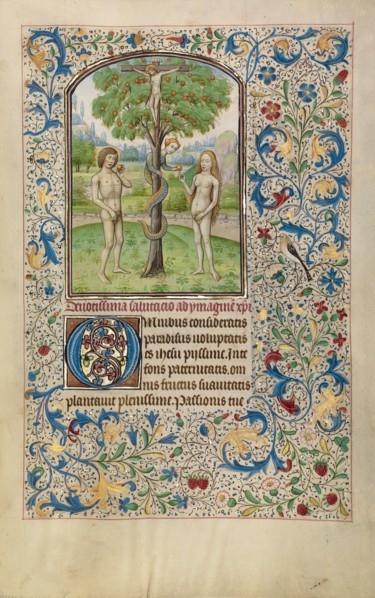 Deuotissima salutacio ad ymaginē xp̄i
Omnibus consideratis
paradisus uoluptatis
es ihesu pyssime. In te
fons paternitatis, om
nis fructus suauitatis
plantauit plenissime. Passionis tue